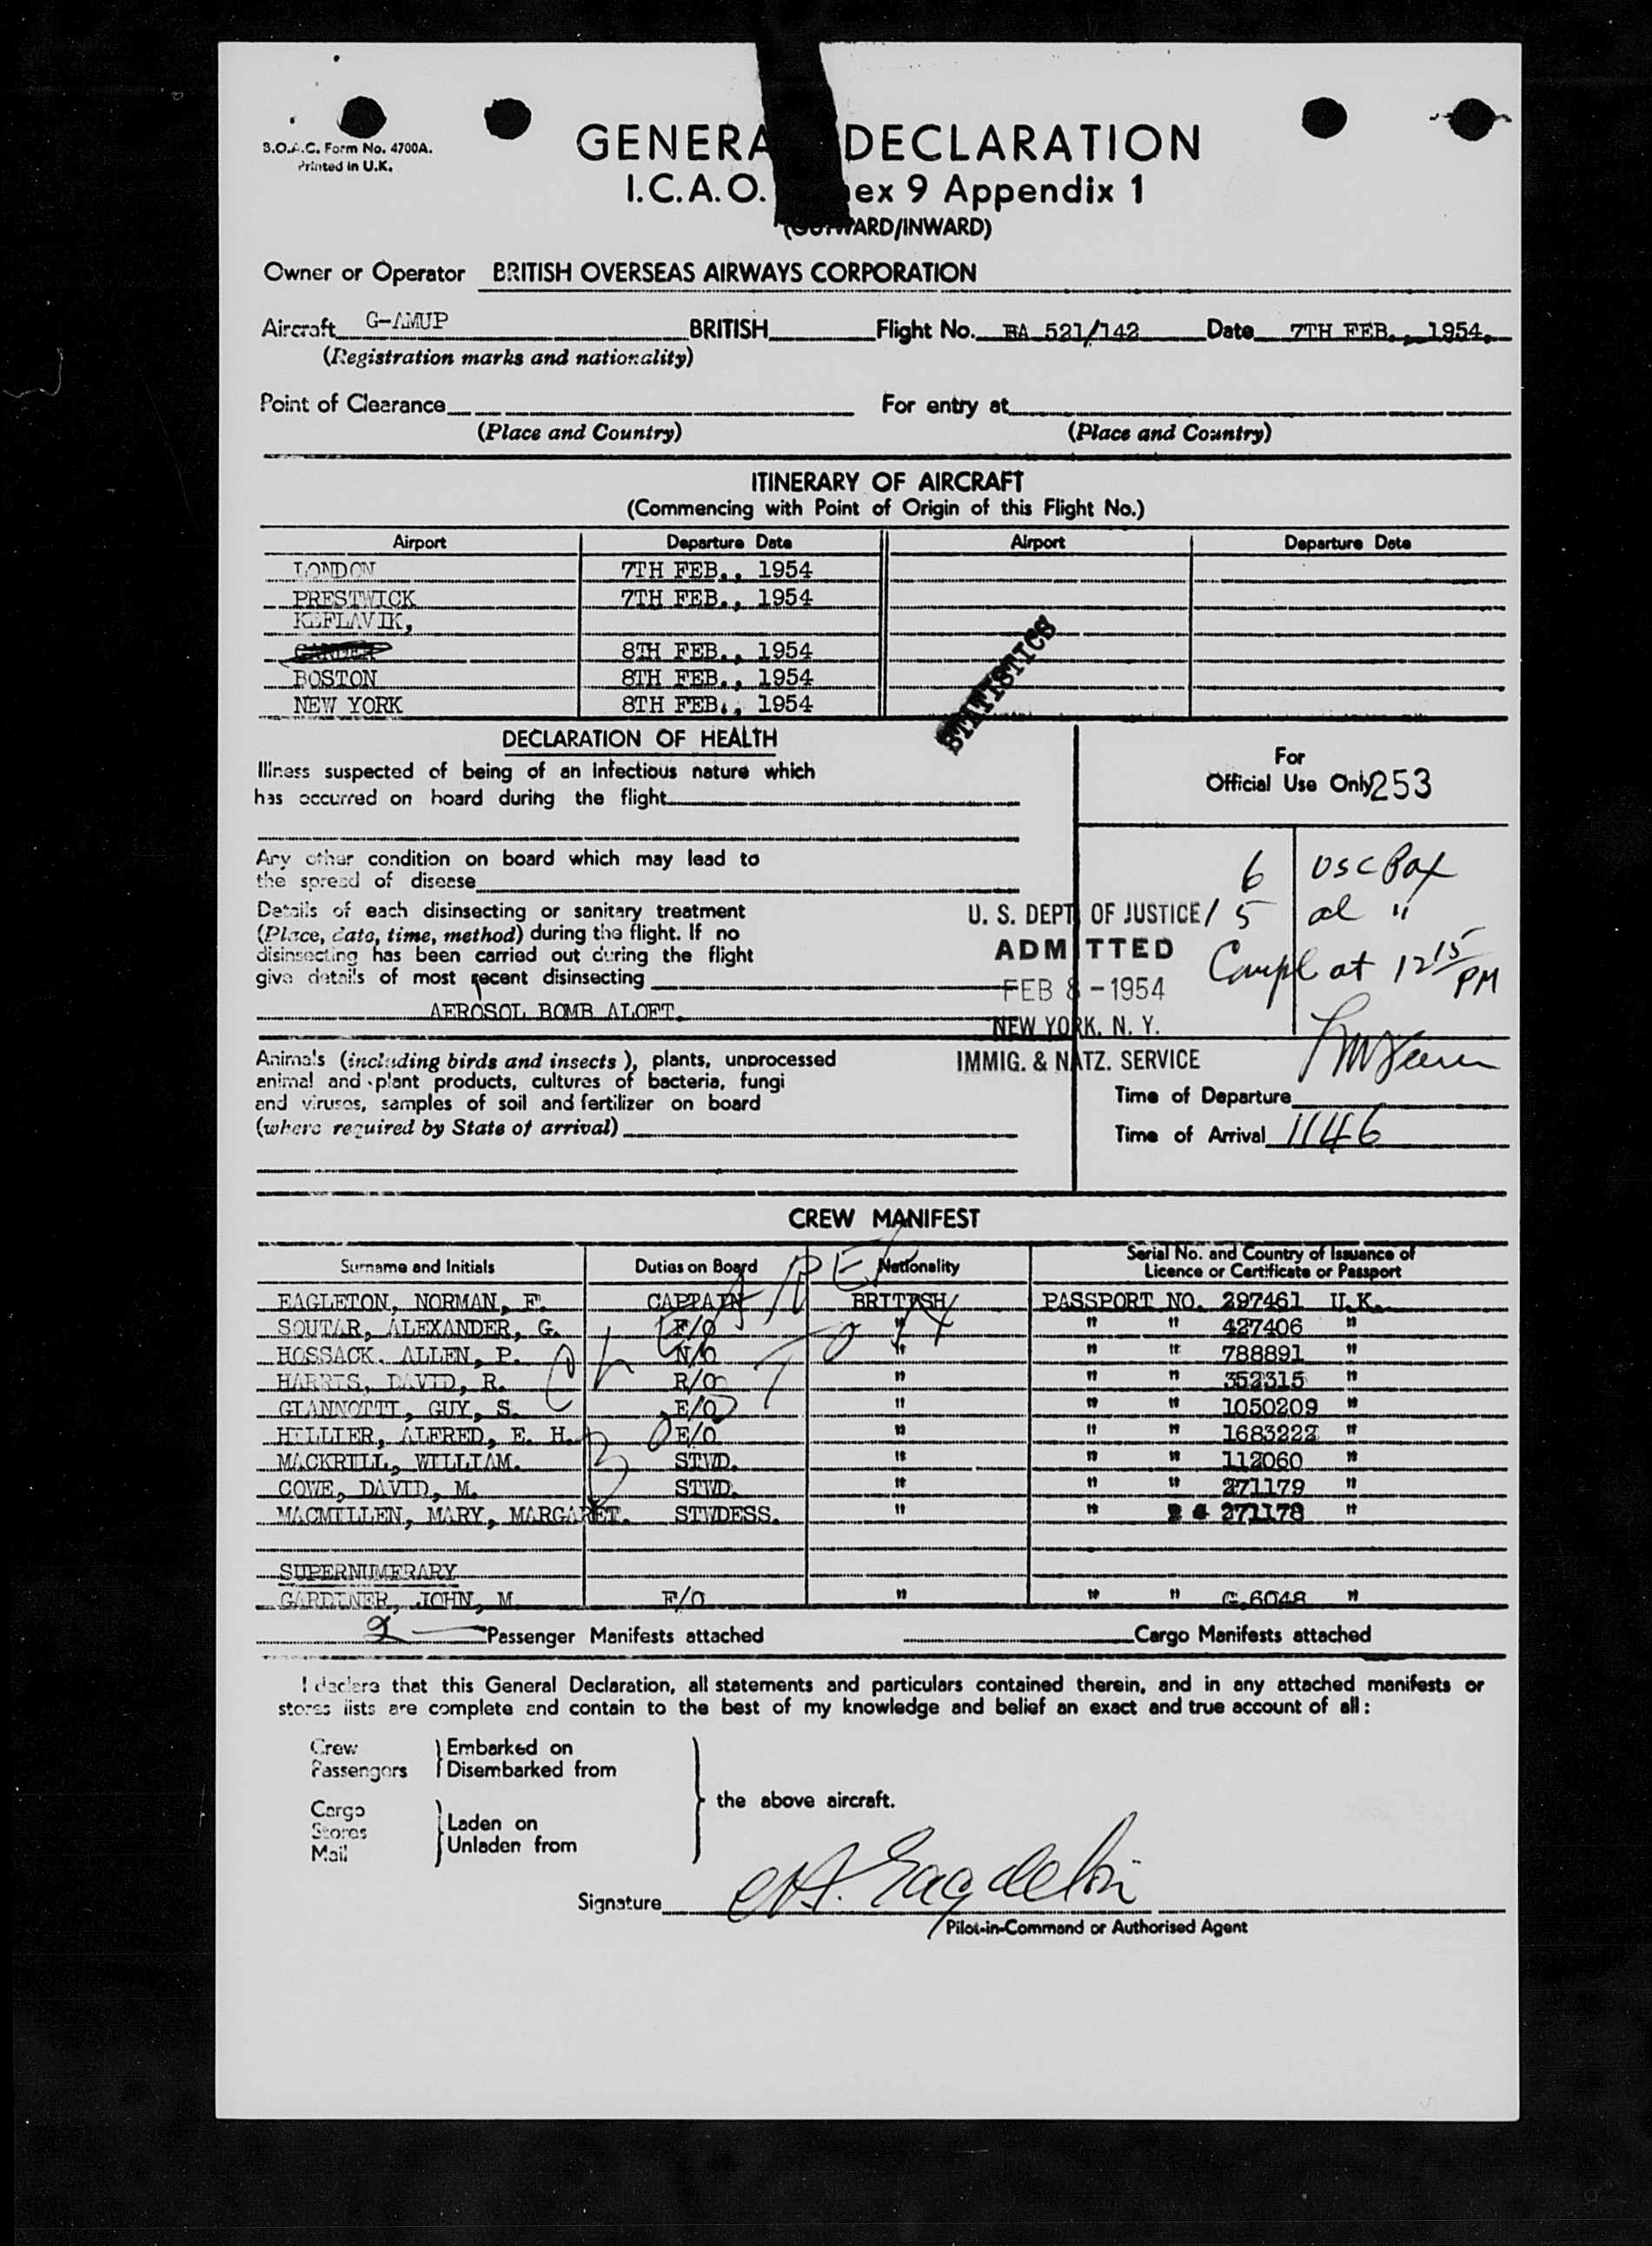 B.O.A.C. Form No. 4700A.
Printed in U.K.
GENERA DECLARATION
I.C.A.O. ex 9 Appendix 1
(OUTWARD/INWARD)
Owner or Operator BRITISH OVERSEAS AIRWAYS CORPORATION
Aircraft G-AMUP BRITISH Flight No. BA 521/142 Date 7TH FEB., 1954.
(Registration marks and nationality)
Point of Clearance For entry at
(Place and Country) (Place and Country)
ITINERARY OF AIRCRAFT
(Commencing with Point of Origin of this Flight No.)
Airport Departure Date Airport Departure Date
LONDON 7TH FEB., 1954
PRESTWICK 7TH FEB., 1954
KEFLAVIK,
GANDER 8TH FEB., 1954
BOSTON 8TH FEB., 1954
NEW YORK 8TH FEB., 1954
STATISTICS
DECLARATION OF HEALTH
Illness suspected of being of an infectious nature which
has occurred on board during the flight
For
Official Use Only 253
Any other condition on board which may lead to
the spread of disease
6 USC Pax
15 al "
Compl at 12 15 PM
Details of each disinsecting or sanitary treatment
(Place, date, time, method) during the flight. If no
disinsecting has been carried out during the flight
give details of most recent disinsecting
AEROSOL BOMB ALOFT.
U. S. DEPT. OF JUSTICE
ADMITTED
FEB 8 - 1954
NEW YORK, N. Y.
IMMIG. & NATZ. SERVICE
Animals (including birds and insects), plants, unprocessed
animal and plant products, cultures of bacteria, fungi
and viruses, samples of soil and fertilizer on board
(where required by State of arrival)
Time of Departure
Time of Arrival 1146
CREW MANIFEST
Surname and Initials Duties on Board Nationality Serial No. and Country of Issuance of
Licence or Certificate or Passport
EAGLETON, NORMAN, F. CAPTAIN BRITISH PASSPORT NO. 297461 U.K.
SOUTAR, ALEXANDER, G. F/O " " " 427406 "
HOSSACK. ALLEN, P. N/O " " " 788891 "
HARRIS, DAVID, R. R/O " " " 352315 "
GIANNOTTI, GUY, S. E/O " " " 1050209 "
HILLIER, ALFRED, E. H. E/O " " " 1683222 "
MACKRILL, WILLIAM. STWD. " " " 112060 "
COWE, DAVID, M. STWD. " " " 271179 "
MACMILLEN, MARY, MARGARET. STWDESS. " " 271178 "
SUPERNUMERARY
GARDINER, JOHN, M F/O " " " G.6048 "
2 Passenger Manifests attached Cargo Manifests attached
I declare that this General Declaration, all statements and particulars contained therein, and in any attached manifests or
stores lists are complete and contain to the best of my knowledge and belief an exact and true account of all:
Crew Embarked on
Passengers Disembarked from
the above aircraft.
Cargo
Stores Laden on
Mail Unladen from
Signature
Pilot-in-Command or Authorised Agent